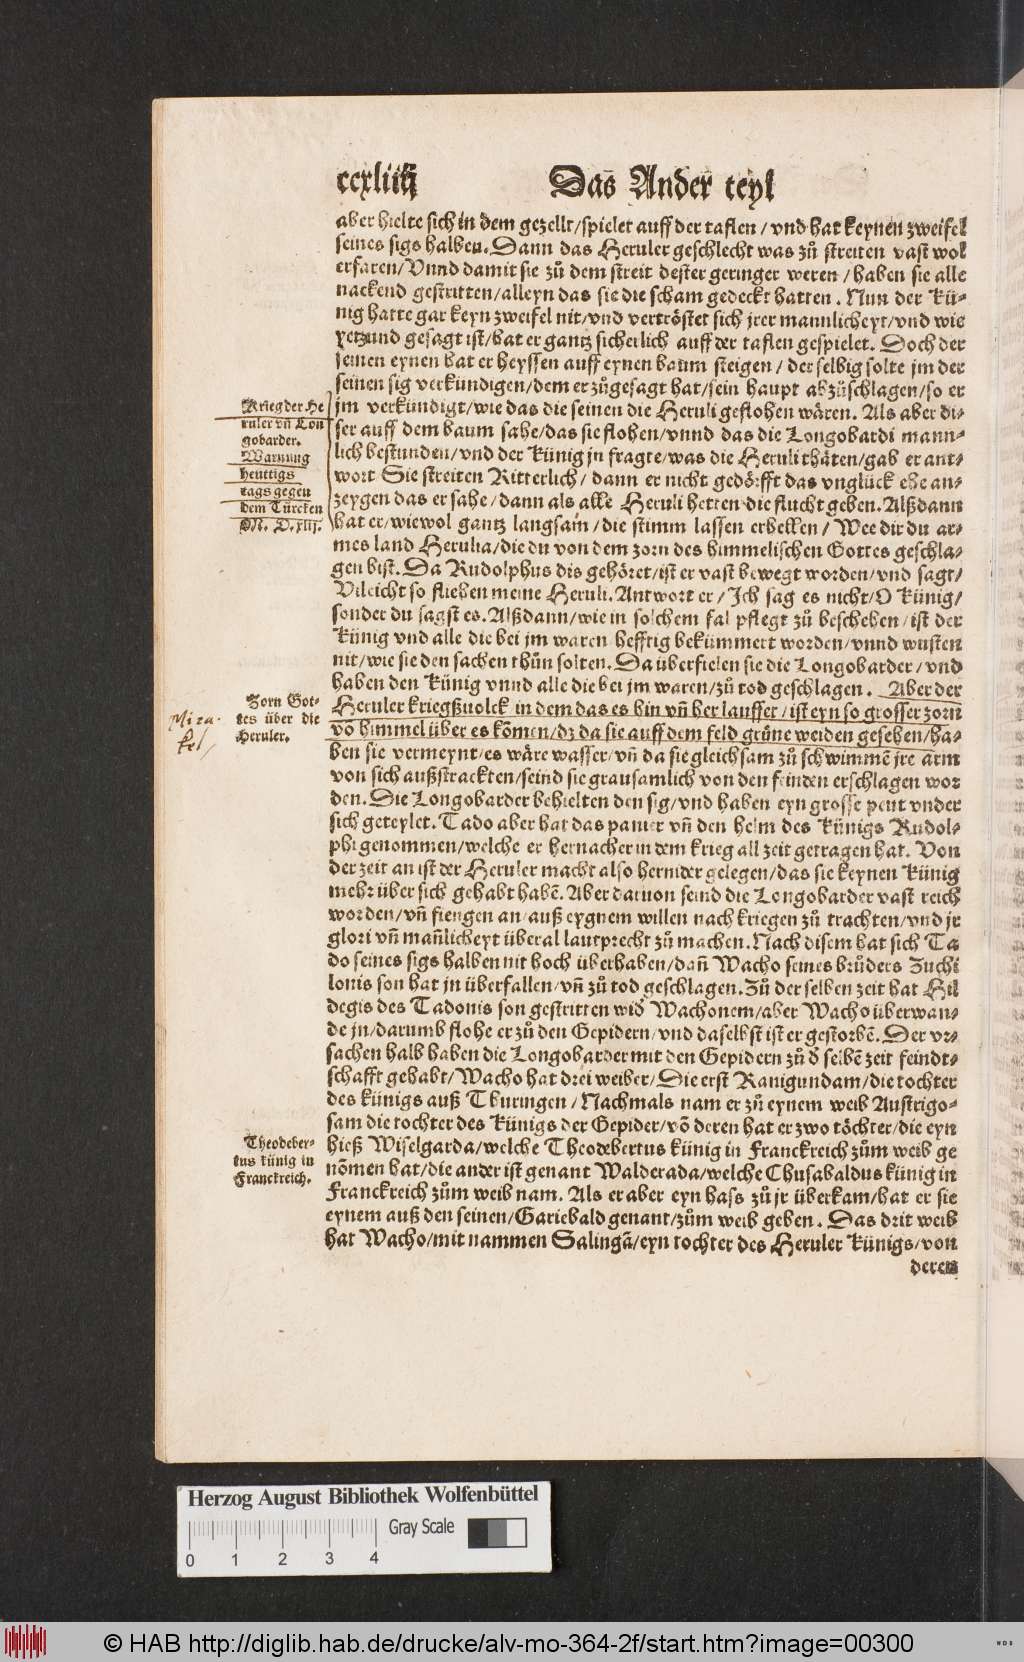 ccxliiij
Das Ander teyl
aber hielte sich in dem gezellt/spielet auff der taflen/vnd hat keynen zweifel
seines sigs halben. Dann das Heruler geschlecht was zů streiten vast wol
erfaren/Vnnd damit sie zů dem streit dester geringer weren/haben sie alle
nackend gestritten/alleyn das sie die scham gedeckt hatten. Nun der Kü-
nig hatte gar keyn zweifel nit/vnd vertröstet sich jrer mannlicheyt/vnd wie
yetzund gesagt ist/hat er gantz sicherlich auff der taflen gespielet. Doch der
seinen eynen hat er heyssen auff eynen baum steigen/der selbig solte jm der
seinen sig verkündigen/dem er zůgesagt hat/sein haupt abzůschlagen/so er
jm verkündigt/wie das die seinen die Heruli geflohen wären. Als aber di-
ser auff dem baum sahe/das sie flohen/vnnd das die Longobardi mann-
lich bestunden/vnd der Künig jn fragte/was die Heruli thäten/gab er ant-
wort Sie streiten Ritterlich/dann er nicht gedörfft das vnglück ehe an-
zeygen das er sahe/dann als alle Heruli hetten die flucht geben. Alßdann
hat er/wiewol gantz langsam/die stimm lassen erhellen/Wee dir du ar-
mes land Herulia/die du von dem zorn des himmelischen Gottes geschla-
gen bist. Da Rudolphus dis gehöret/ist er vast bewegt worden/vnd sagt/
Vileicht so fliehen meine Heruli. Antwort er/Ich sag es nicht/O Künig/
sonder du sagst es. Alßdann/wie in solchem fal pflegt zů beschehen/ist der
Künig vnd alle die bei jm waren hefftig bekümmert worden/vnnd wusten
nit/wie sie den sachen thůn solten. Da überfielen sie die Longobarder/vnd
haben den Künig vnnd alle die bei jm waren/zů tod geschlagen. Aber der
Heruler kriegßuolck in dem das es hin vñ her lauffet/ist eyn so grosser zorn
võ himmel über es kõmen/dz da sie auff dem feld grůne weiden gesehen/ha-
ben sie vermeynt/es wäre wasser/vñ da sie gleichsam zů schwimmẽ jre arm
von sich außstrackten/seind sie grausamlich von den feinden erschlagen wor
den. Die Longobarder behielten den sig/vnd haben eyn grosse peut vnder
sich geteylet. Tado aber hat das panier vñ den helm des Künigs Rudol-
phi genommen/welche er hernacher in dem krieg all zeit getragen hat. Von
der zeit an ist der Heruler macht also hernider gelegen/das sie keynen Künig
mehr über sich gehabt habẽ. Aber daruon seind die Longobarder vast reich
worden/vñ fiengen an auß eygnem willen nach kriegen zů trachten/vnd jr
glori vñ mañlicheyt überal lautprecht zů machen. Nach disem hat sich Ta
do seines sigs halben nit hoch überhaben/dañ Wacho seines brůders Zuchi
lonis son hat jn überfallen/vñ zů tod geschlagen. Zů der selben zeit hat Hil
degis des Tadonis son gestritten wid Wachonem/aber Wacho überwan-
de jn/darumb flohe er zů den Gepidern/vnd daselbst ist er gestorbẽ. Der vr-
sachen halb haben die Longobarder mit den Gepidern zů d selbẽ zeit feindt-
schafft gehabt/Wacho hat drei weiber/Die erst Ranigundam/die tochter
des künigs auß Thuringen/Nachmals nam er zů eynem weib Austrigo-
sam die tochter des Künigs der Gepider/võ deren hat er zwo töchter/die eyn
hieß Wiselgarda/welche Theodebertus künig in Franckreich zům weib ge
nõmen hat/die ander ist genant Walderada/welche Chusabaldus künig in
Franckreich zům weib nam. Als er aber eyn hass zů jr überkam/hat er sie
eynem auß den seinen/Gariebald genant/zům weib geben. Das drit weib
hat Wacho/mit nammen Salingã/eyn tochter des Heruler Künigs/von
deren
Krieg der He
ruler vñ Lon
gobarder.
Warnung
heuttigs
tags gegen
dem Türcken
M. D. xlij.
Zorn Got-
tes über die
Heruler.
Mira-
kel
Theodeber-
tus künig in
Franckreich.
Herzog August Bibliothek Wolfenbüttel
Gray Scale
0 1 2 3 4
© HAB http://diglib.hab.de/drucke/alv-mo-364-2f/start.htm?image=00300